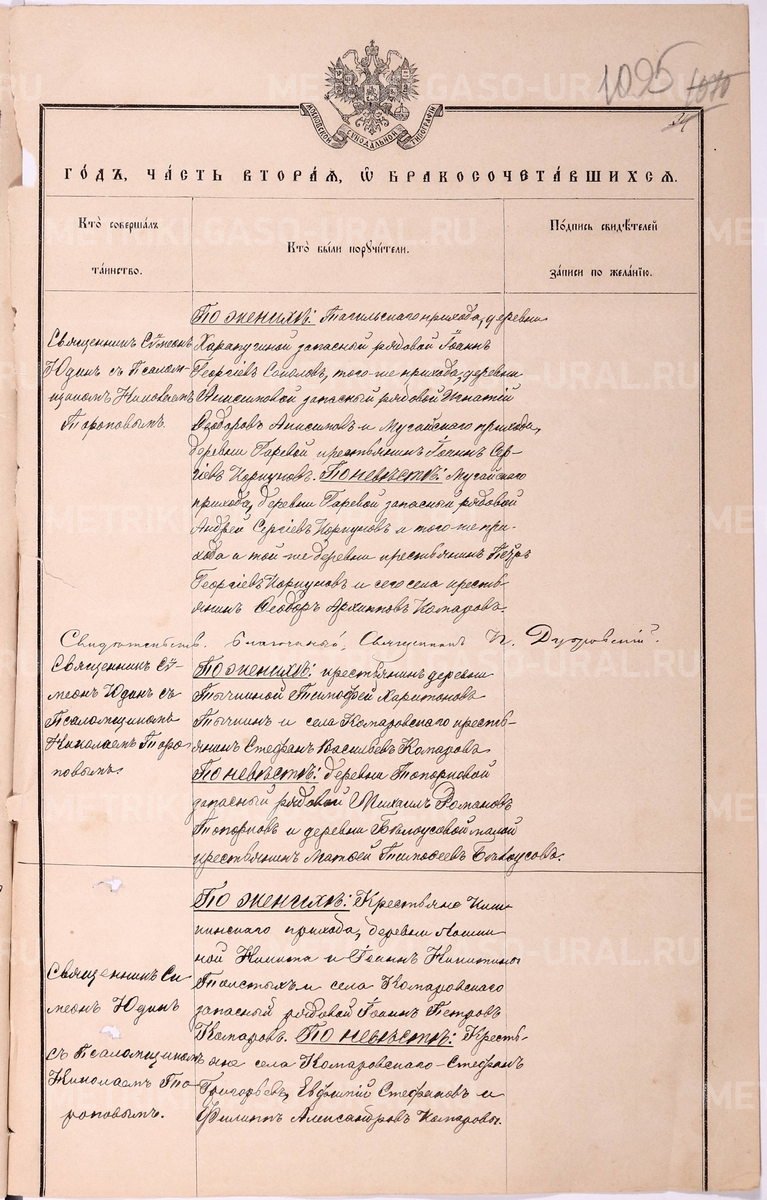 1095 1070
МОСКОВСКОЙ СѴНОДАЛЬНОЙ ТИПОГРАФІИ
ГО́ДЪ, ЧА́СТЬ ВТОРА́Я, Ѡ БРАКОСОЧЕТА́ВШИХСЯ.
Кто̀ совершалъ таинство.
Кто̀ бы́ли поручи́тели.
По́дпись свидѣ́телей за́писи по жела́нію.
Священникъ Сѵмеонъ
Юдинъ съ Псалом-
щикомъ Николаемъ
Тороповымъ.
По женихѣ: Тагильскаго прихода, деревни
Харапугиной запасный рядовой Іоаннъ
Георгіевъ Соколовъ, того-же прихода, деревни
Анисимовой запасный рядовой Игнатій
Ѳеодоровъ Анисимовъ и Мугайскаго прихода,
деревни Гаревой крестьянинъ Іоаннъ Сер-
гіевъ Коркуновъ. По невѣстѣ: Мугайскаго
прихода, деревни Гаревой запасный рядовой
Андрей Сергіевъ Коркуновъ и того-же при-
хода и той-же деревни крестьянинъ Петръ
Георгіевъ Коркуновъ и сего села кресть-
янинъ Ѳеодоръ Архиповъ Комаровъ.
Благочинный, Священникъ
Священникъ Сѵ-
меонъ Юдинъ съ
Псаломщикомъ
Николаемъ Торо-
повымъ.
По женихѣ: крестьянинъ деревни
Тычкиной Тимофей Харитоновъ
Тычкинъ и села Комаровскаго кресть-
янинъ Стефанъ Васильевъ Комаровъ
По невѣстѣ: деревни Топорковой
запасный рядовой Михаилъ Романовъ
Топорковъ и деревни Бѣлоусовой малой
крестьянинъ Матѳей Тимоѳеевъ Бѣлоусовъ.
Священникъ Си-
меонъ Юдинъ
съ Псаломщикомъ
Николаемъ То-
роповымъ.
По женихѣ: Крестьяне Киш-
кинскаго прихода, деревни Лошки-
ной Никита и Іоаннъ Никитины
Толстыхъ и села Комаровскаго
запасный рядовой Іоаннъ Петровъ
Комаровъ. По невѣстѣ: Кресть-
яне села Комаровскаго Стефанъ
Григорьевъ, Евѳимій Стефановъ и
Филиппъ Александровъ Комаровы.